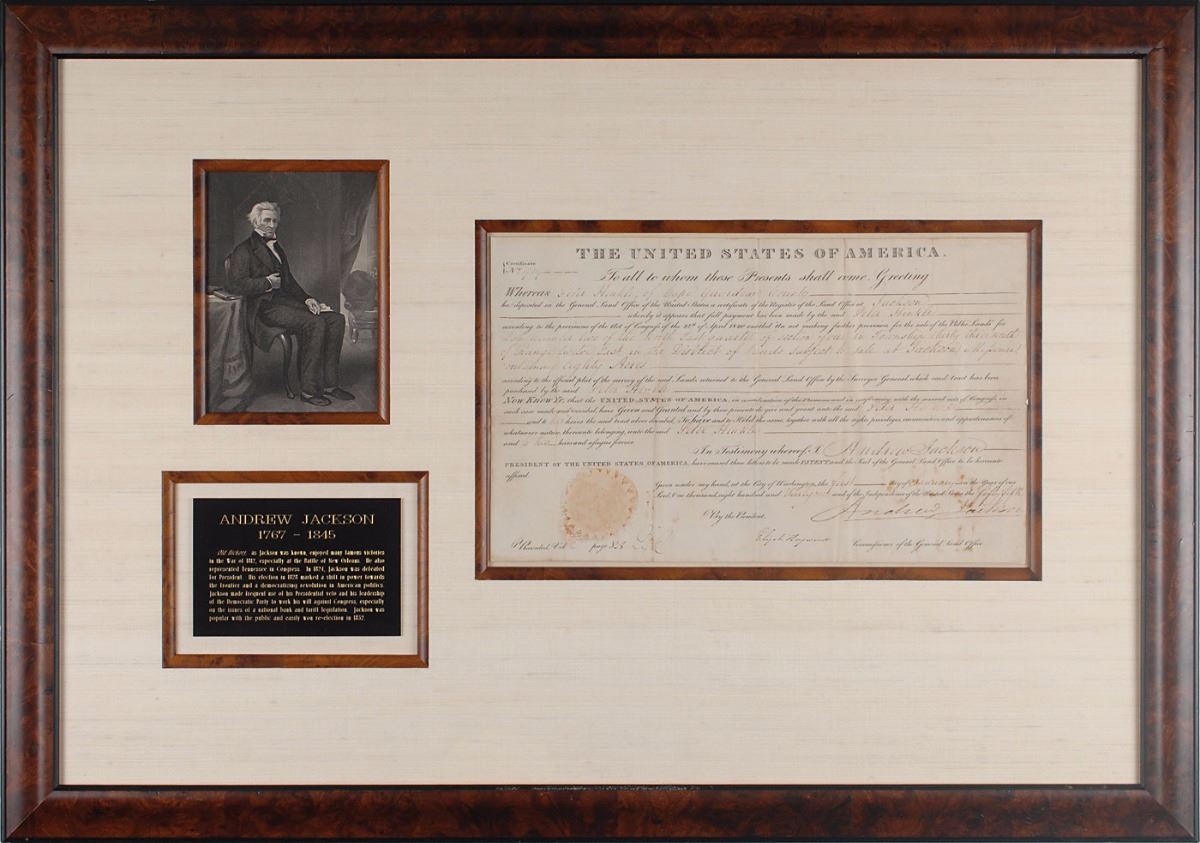 ANDREW JACKSON
1767 - 1845
Old Hickory, as Jackson was known, enjoyed many famous victories
in the War of 1812, especially at the Battle of New Orleans. He also
represented Tennessee in Congress. In 1824, Jackson was defeated
for President. His election in 1828 marked a shift in power towards
the frontier and a democratizing revolution in American politics.
Jackson made frequent use of his Presidential veto and his leadership
of the Democratic Party to work his will against Congress, especially
on the issues of a national bank and tariff legislation. Jackson was
popular with the public and easily won re-election in 1832.
THE UNITED STATES OF AMERICA.
Certificate
No
To all to whom these Presents shall come, Greeting
Whereas Peter Hinkle, of Cape Girardeau County
has deposited in the General Land Office of the United States a certificate of the Register of the Land Office at Jackson
whereby it appears that full payment has been made by the said Peter Hinkle
according to the provisions of the Act of Congress of the 24th of April 1820 entitled An act making further provision for the sale of the Public Lands for
Lot numbered two of the North East quarter of section four in Township thirty three north
of range twelve East in the District of Lands subject to sale at Jackson, Missouri,
containing eighty Acres
according to the official plat of the survey of the said Lands returned to the General Land Office by the Surveyor General, which said tract has been
purchased by the said Peter Hinkle
Now Know Ye, that the UNITED STATES OF AMERICA, in consideration of the Premises and in conformity with the several acts of Congress, in
such case made and provided, have Given and Granted and by these presents do give and grant unto the said Peter Hinkle
and to his heirs the said tract above described. To have and to Hold the same, together with all the rights, privileges, immunities, and appurtenances of
whatsoever nature, thereunto belonging, unto the said Peter Hinkle
and to his heirs and assigns forever.
In Testimony whereof, I, Andrew Jackson
PRESIDENT OF THE UNITED STATES OF AMERICA, have caused these letters to be made PATENT and the Seal of the General Land Office to be hereunto
affixed.
Given under my hand, at the City of Washington, the first day of January in the Year of our
Lord, One thousand, eight hundred and thirty one and of the Independence of the United States the fifty fifth
By the President, Andrew Jackson
Elijah Hayward Commissioner of the General Land Office
Recorded, Vol page